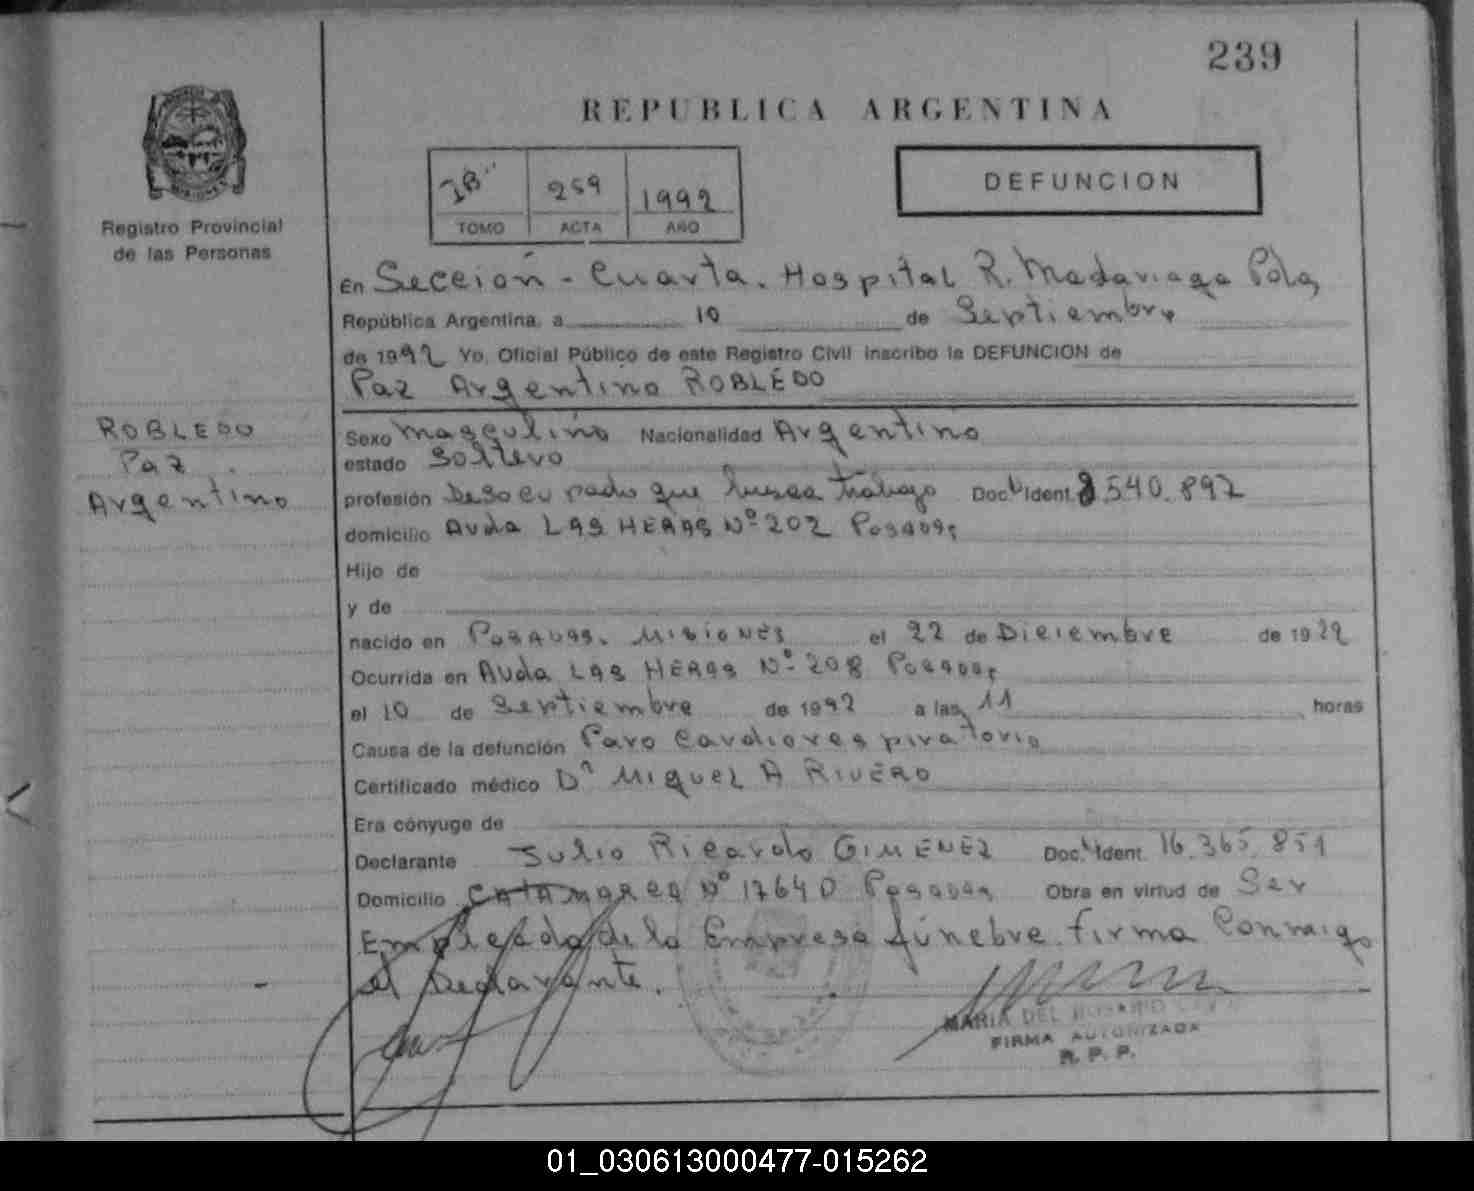 239
REPUBLICA ARGENTINA
1B" 259 1992
TOMO ACTA AÑO
DEFUNCION
Registro Provincial
de las Personas
En Sección - Cuarta. Hospital R. Madariaga Pdas
República Argentina, a 10 de Septiembre
de 1992 Yo, Oficial Público de este Registro Civil inscribo la DEFUNCION de
Paz Argentino ROBLEDO
ROBLEDO
Paz
Argentino
Sexo Masculino Nacionalidad Argentino
estado Soltero
profesión Desocupado que busca trabajo Doc. Ident. 540.897
domicilio Avda LAS HERAS Nº 202 Posadas
Hijo de
y de
nacido en POSADAS. MISIONES el 22 de Diciembre de 19
Ocurrida en Avda LAS HERAS Nº 208 Posadas
el 10 de Septiembre de 1992 a las 11 horas
Causa de la defunción Paro Cardiorespiratorio
Certificado médico Dr MIGUEL A RIVERO
Era cónyuge de
Declarante Julio Ricardo GIMENEZ Doc. Ident. 16.365.851
Domicilio CATAMARCA Nº 1764 Posadas Obra en virtud de Ser
Empleado de la Empresa fúnebre. firma Conmigo
el Declarante.
MARIA DEL ROSARIO
FIRMA AUTORIZADA
R. P. P.
01_030613000477-015262